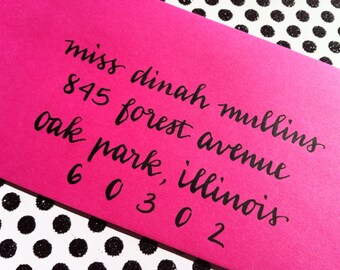 miss dinah mullins
845 forest avenue
oak park, illinois
6 0 3 0 2